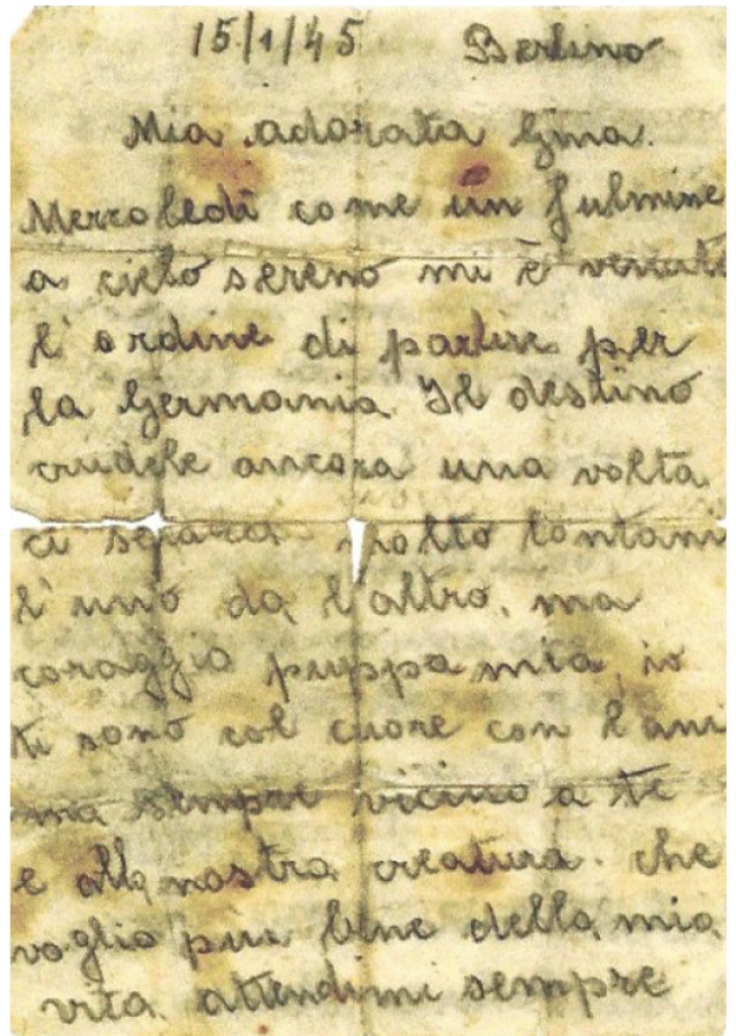 15/1/45 Berlino
Mia adorata Gina.
Mercoledì come un fulmine
a cielo sereno mi è venuto
l'ordine di partire per
la Germania Il destino
crudele ancora una volta
ci separa molto lontani
l'uno da l'altro. ma
coraggio puppa mia, io
ti sono col cuore con l'ani
ma sempre vicino a te
e alla nostra creatura. che
voglio più bene della mia
vita. attendimi sempre